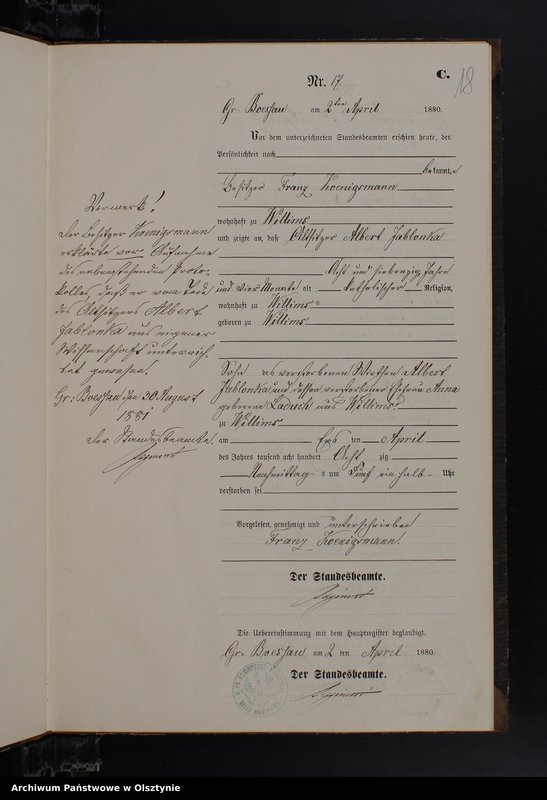 C.
18
Nr. 17.
Gr. Boessau am 2ten April 1880.
Vor dem unterzeichneten Standesbeamten erschien heute, der
Persönlichkeit nach
bekannt,
Besitzer Franz Koenigsmann
wohnhaft zu Willims
und zeigte an, daß Altsitzer Albert Jablonka
Acht und siebenzig Jahre
und vier Monate alt katholischer Religion,
wohnhaft zu Willims
geboren zu Willims
Sohn des verstorbenen Wirthen Albert
Jablonka und dessen verstorbener Ehefrau Anna
geborene Laduch aus Willims
zu Willims
am Ers ten April
des Jahres tausend acht hundert Acht zig
Nachmittag s um Fünf ein halb Uhr
verstorben sei
Vorgelesen, genehmigt und unterschrieben
Franz Koenigsmann.
Der Standesbeamte.
Die Uebereinstimmung mit dem Hauptregister beglaubigt.
Gr. Boessau am 2 ten April 1880.
Der Standesbeamte.
Vermerk!
Der Besitzer Koenigsmann
erklärte vor Aufnahme
des nebenstehenden Proto-
kolles daß er vom Tode
des Altsitzers Albert
Jablonka aus eigener
Wissenschaft unterrich-
tet gewesen.
Gr: Boessau den 30 August
1881
Der Standesbeamte
Archiwum Państwowe w Olsztynie